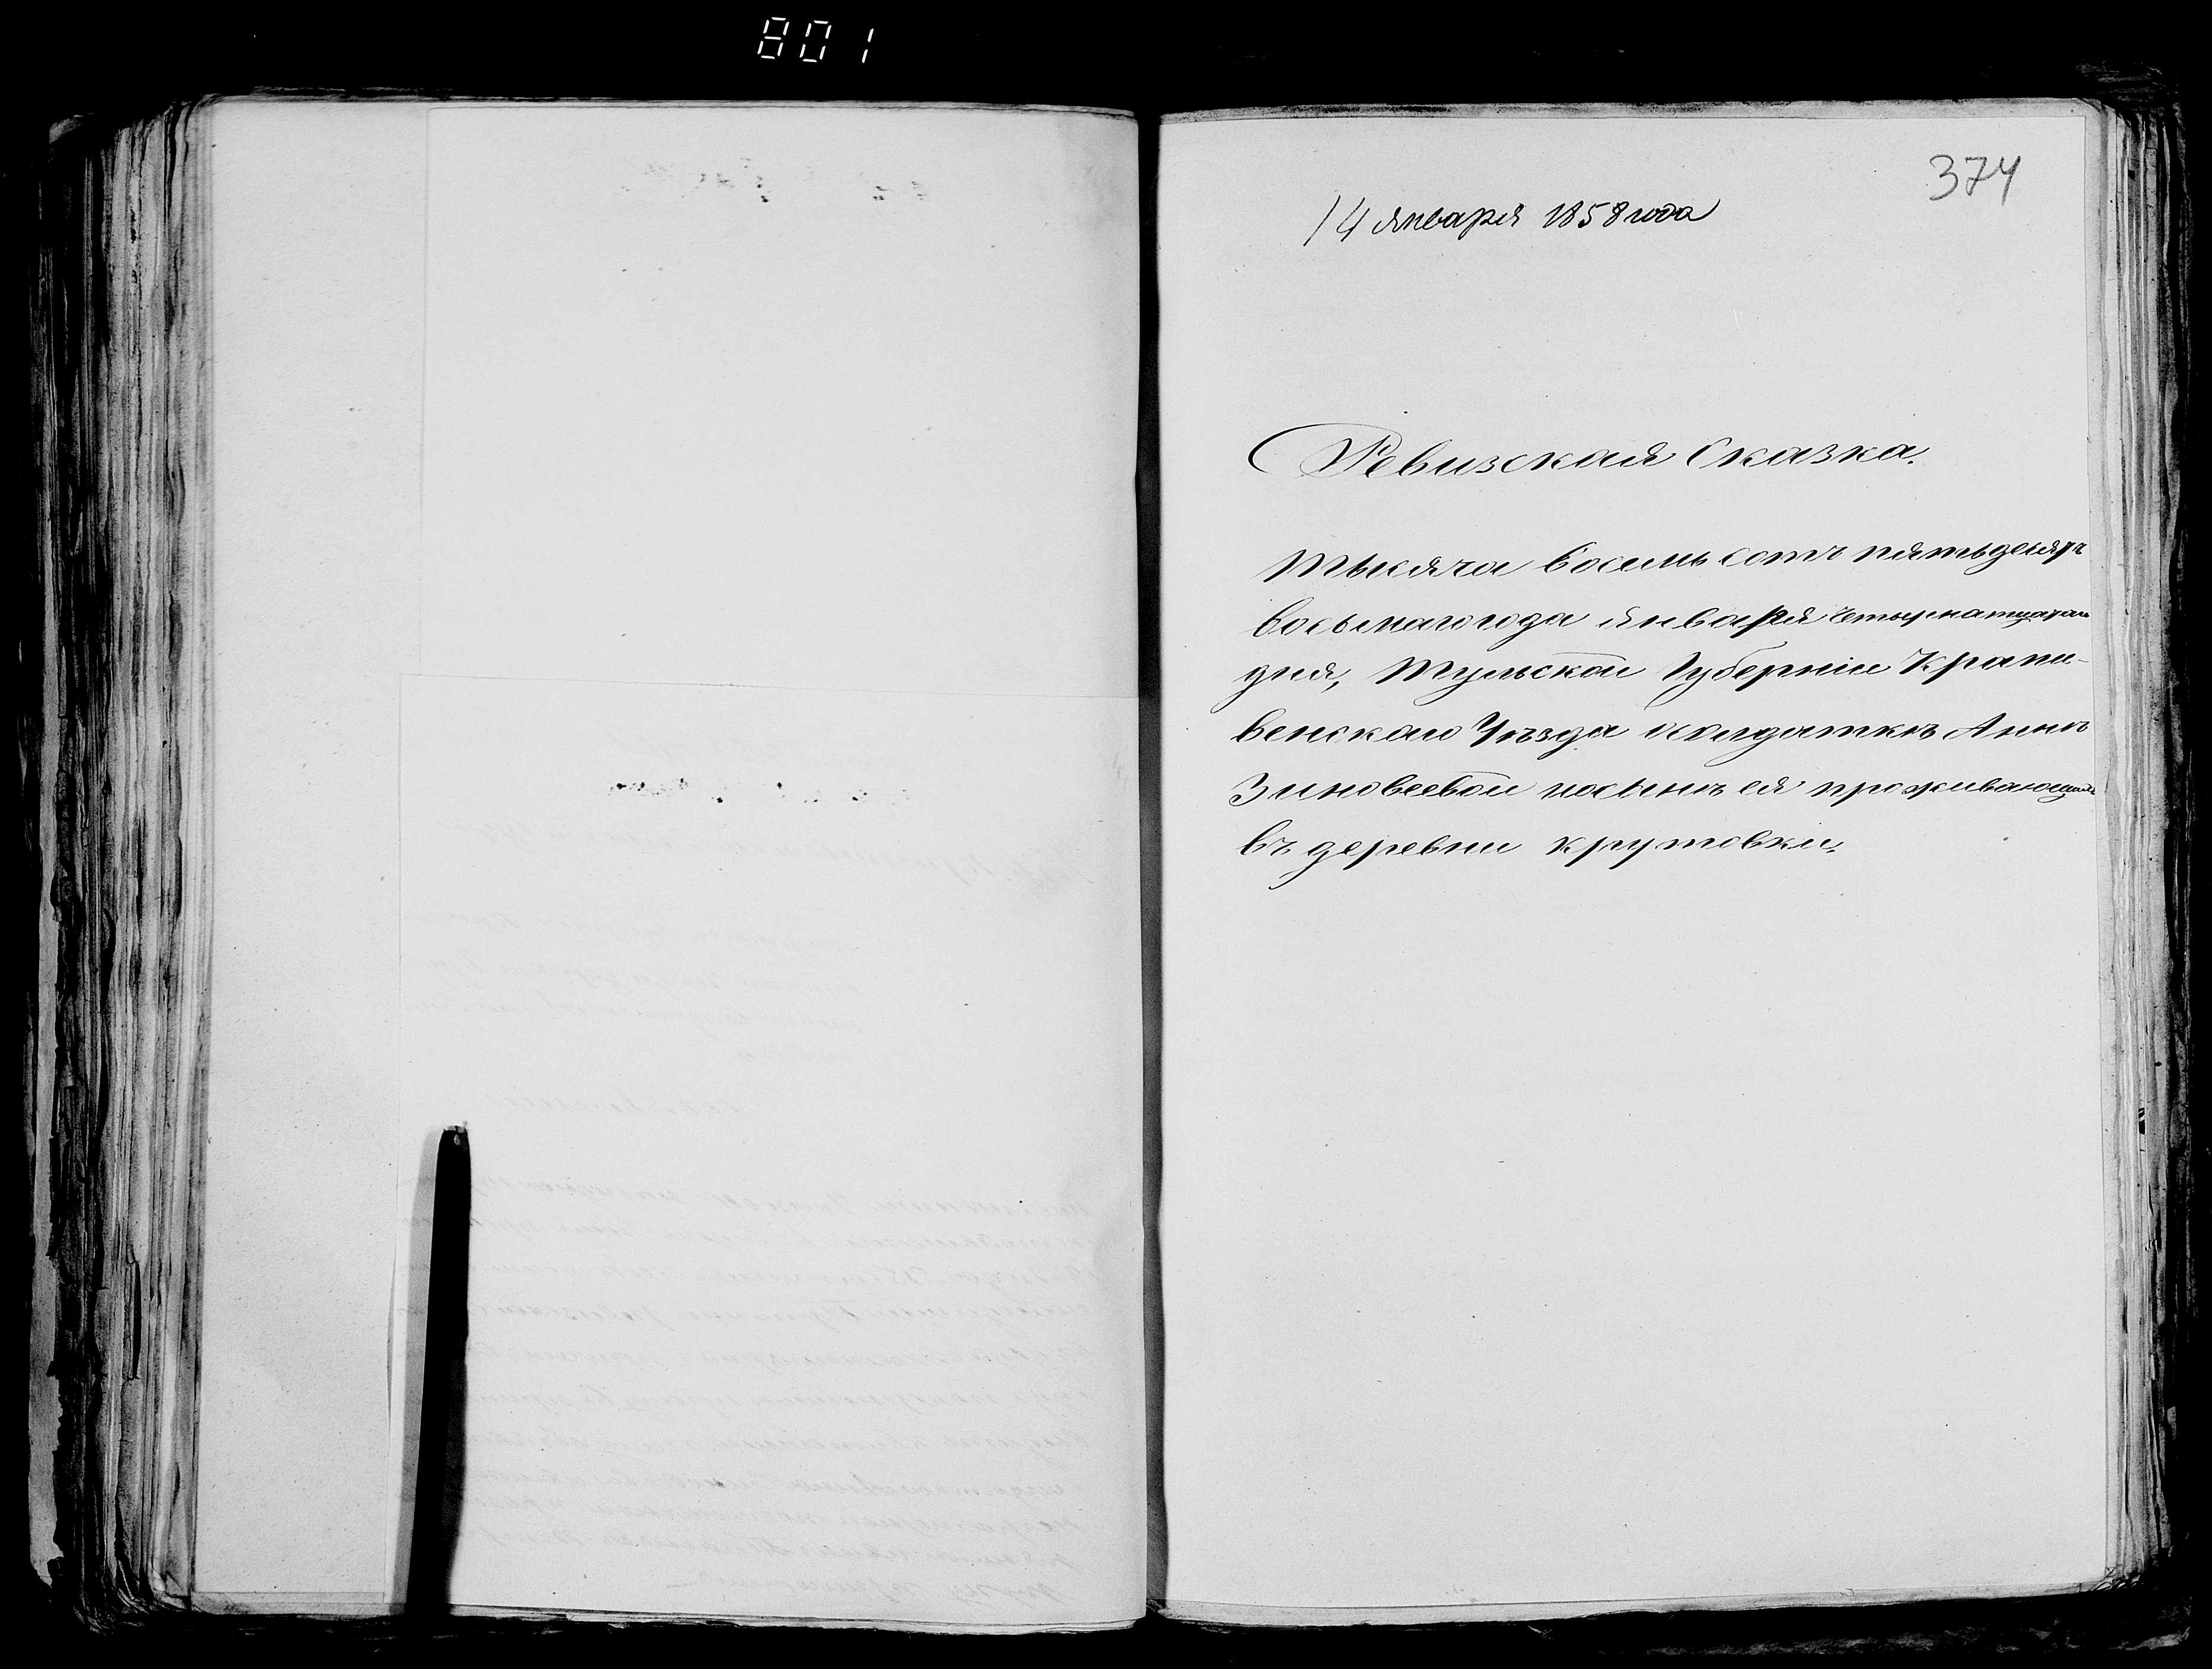 801
374
14 января 1858 года
Ревизская Сказка.
Тысяча восемь сотъ пятьдесятъ
восьмаго года января четырнатцатаго
дня, Тульской Губернiи Крапи-
венскаго Уѣзда о солдаткѣ Аннѣ
Зиновеевой и о сынѣ ея проживающей
въ деревни крутовки.